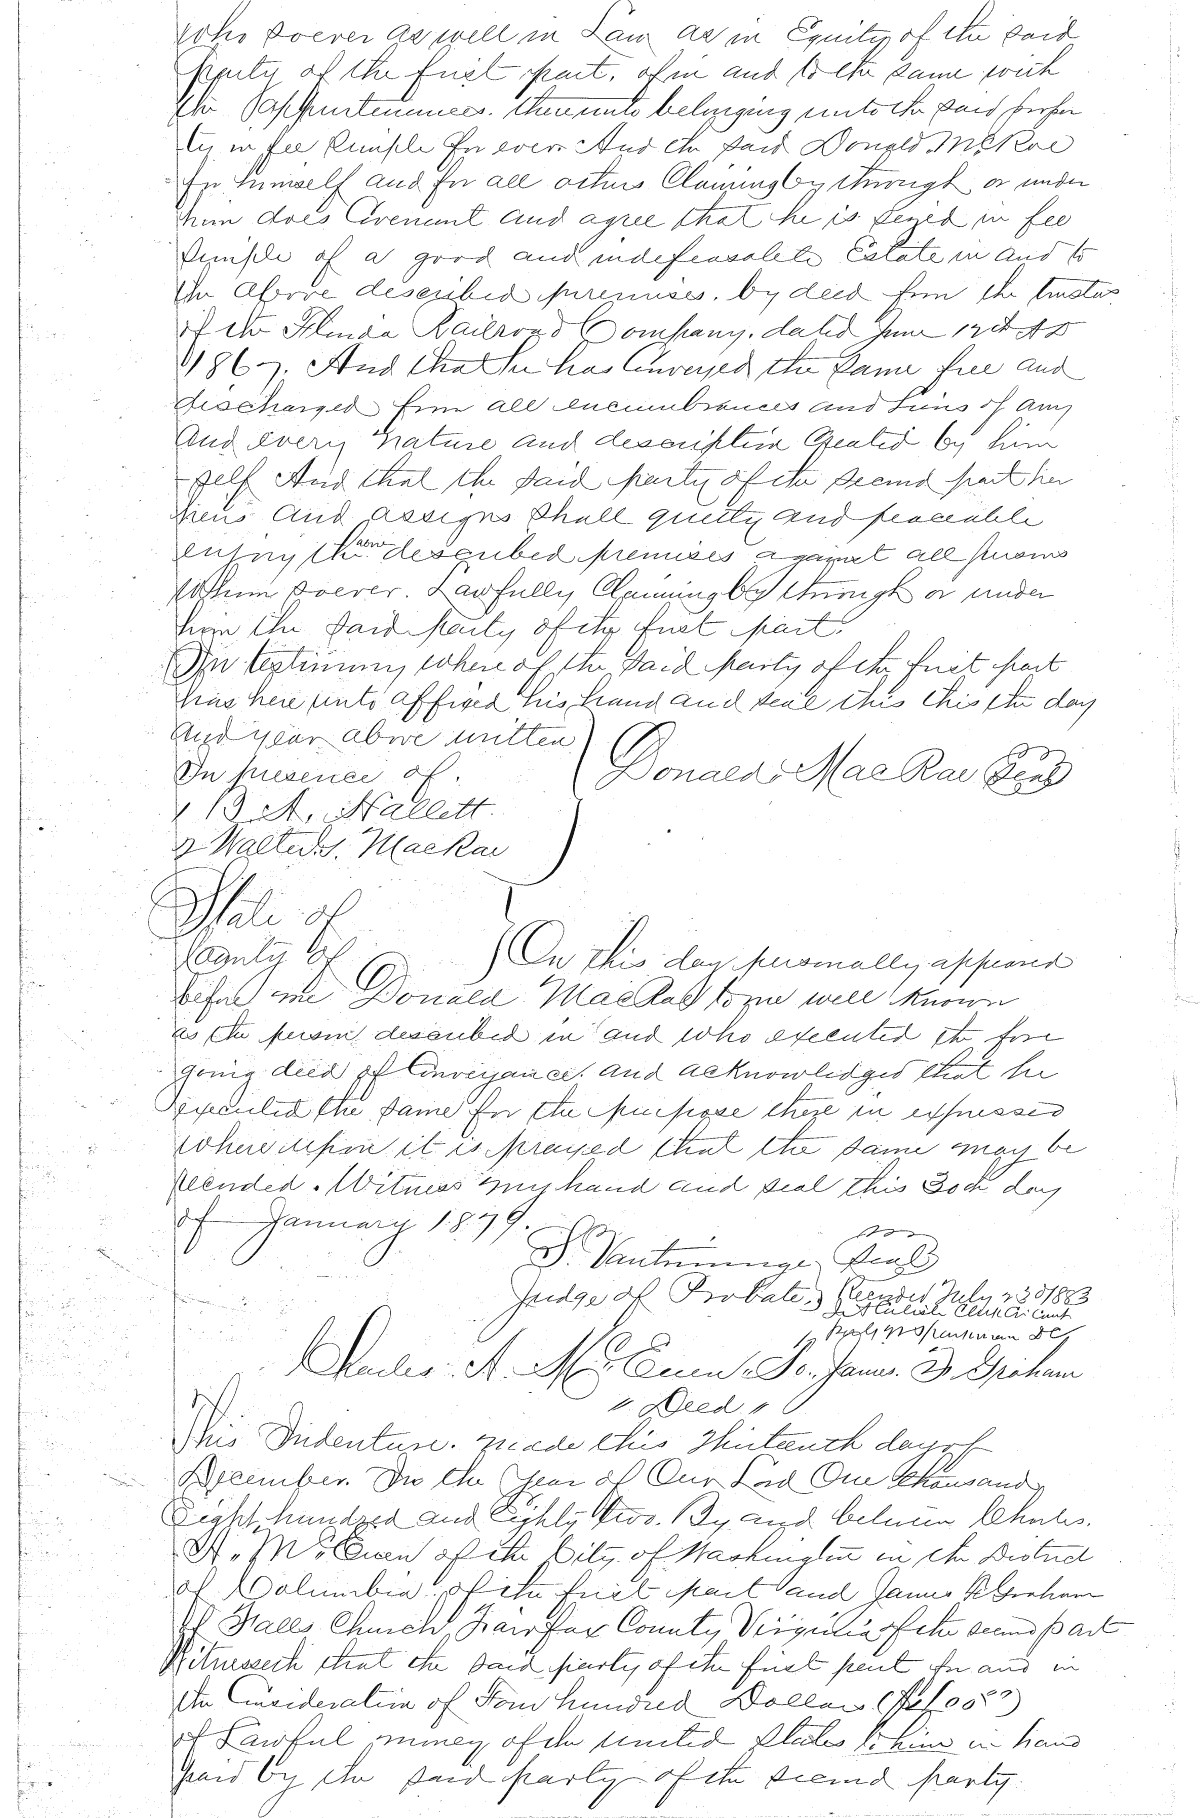 who soever as well in Law as in Equity of the said
party of the first part, of in and to the same with
the appurtenances. thereunto belonging unto the said proper
ty in fee simple for ever And the said Donald McRae
for himself and for all others Claiming by through or under
him does Covenant and agree that he is seized in fee
simple of a good and indefeasable Estate in and to
the above described premises. by deed from the trustees
of the Florida Railroad Company. dated June AD
1867. And that he has Conveyed the same free and
discharged from all encumbrances and Liens of any
and every nature and description Created by him
self And that the said party of the second part her
heirs and assigns shall quietly and peaceable
enjoy the above described premises against all persons
whom soever. Lawfully Claiming by through or under
him the said party of the first part.
In testimony where of the said party of the first part
has here unto affixed his hand and seal this this the day
and year above written
In presence of. Donald MacRae Seal
1 B. A. Hallett.
2 Walter S. MacRae
State of
County of } On this day personally appeared
before me Donald MacRae to me well known
as the person described in and who executed the fore
going deed of Conveyance. and acknowledged that he
executed the same for the purpose there in expressed
where upon it is prayed that the same may be
recorded. Witness my hand and seal this 30th day
of January 1879.
Seal
Judge of Probate. Recorded July 23d 1883
Clerk Cir Court
DC
Charles. A. McEuen. To. James. Graham
" Deed "
This Indenture. made this Thirteenth day of
December. In the Year of Our Lord One thousand
Eight hundred and Eighty two. By and between Charles.
A. McEuen of the City of Washington in the District
of Columbia. of the first part and James Graham
of Falls Church, Fairfax County Virginia of the second part
Witnesseth that the said party of the first part for and in
the Consideration of Four hundred Dollars ($400.00)
of Lawful money of the united States to him in hand
paid by the said party of the second party